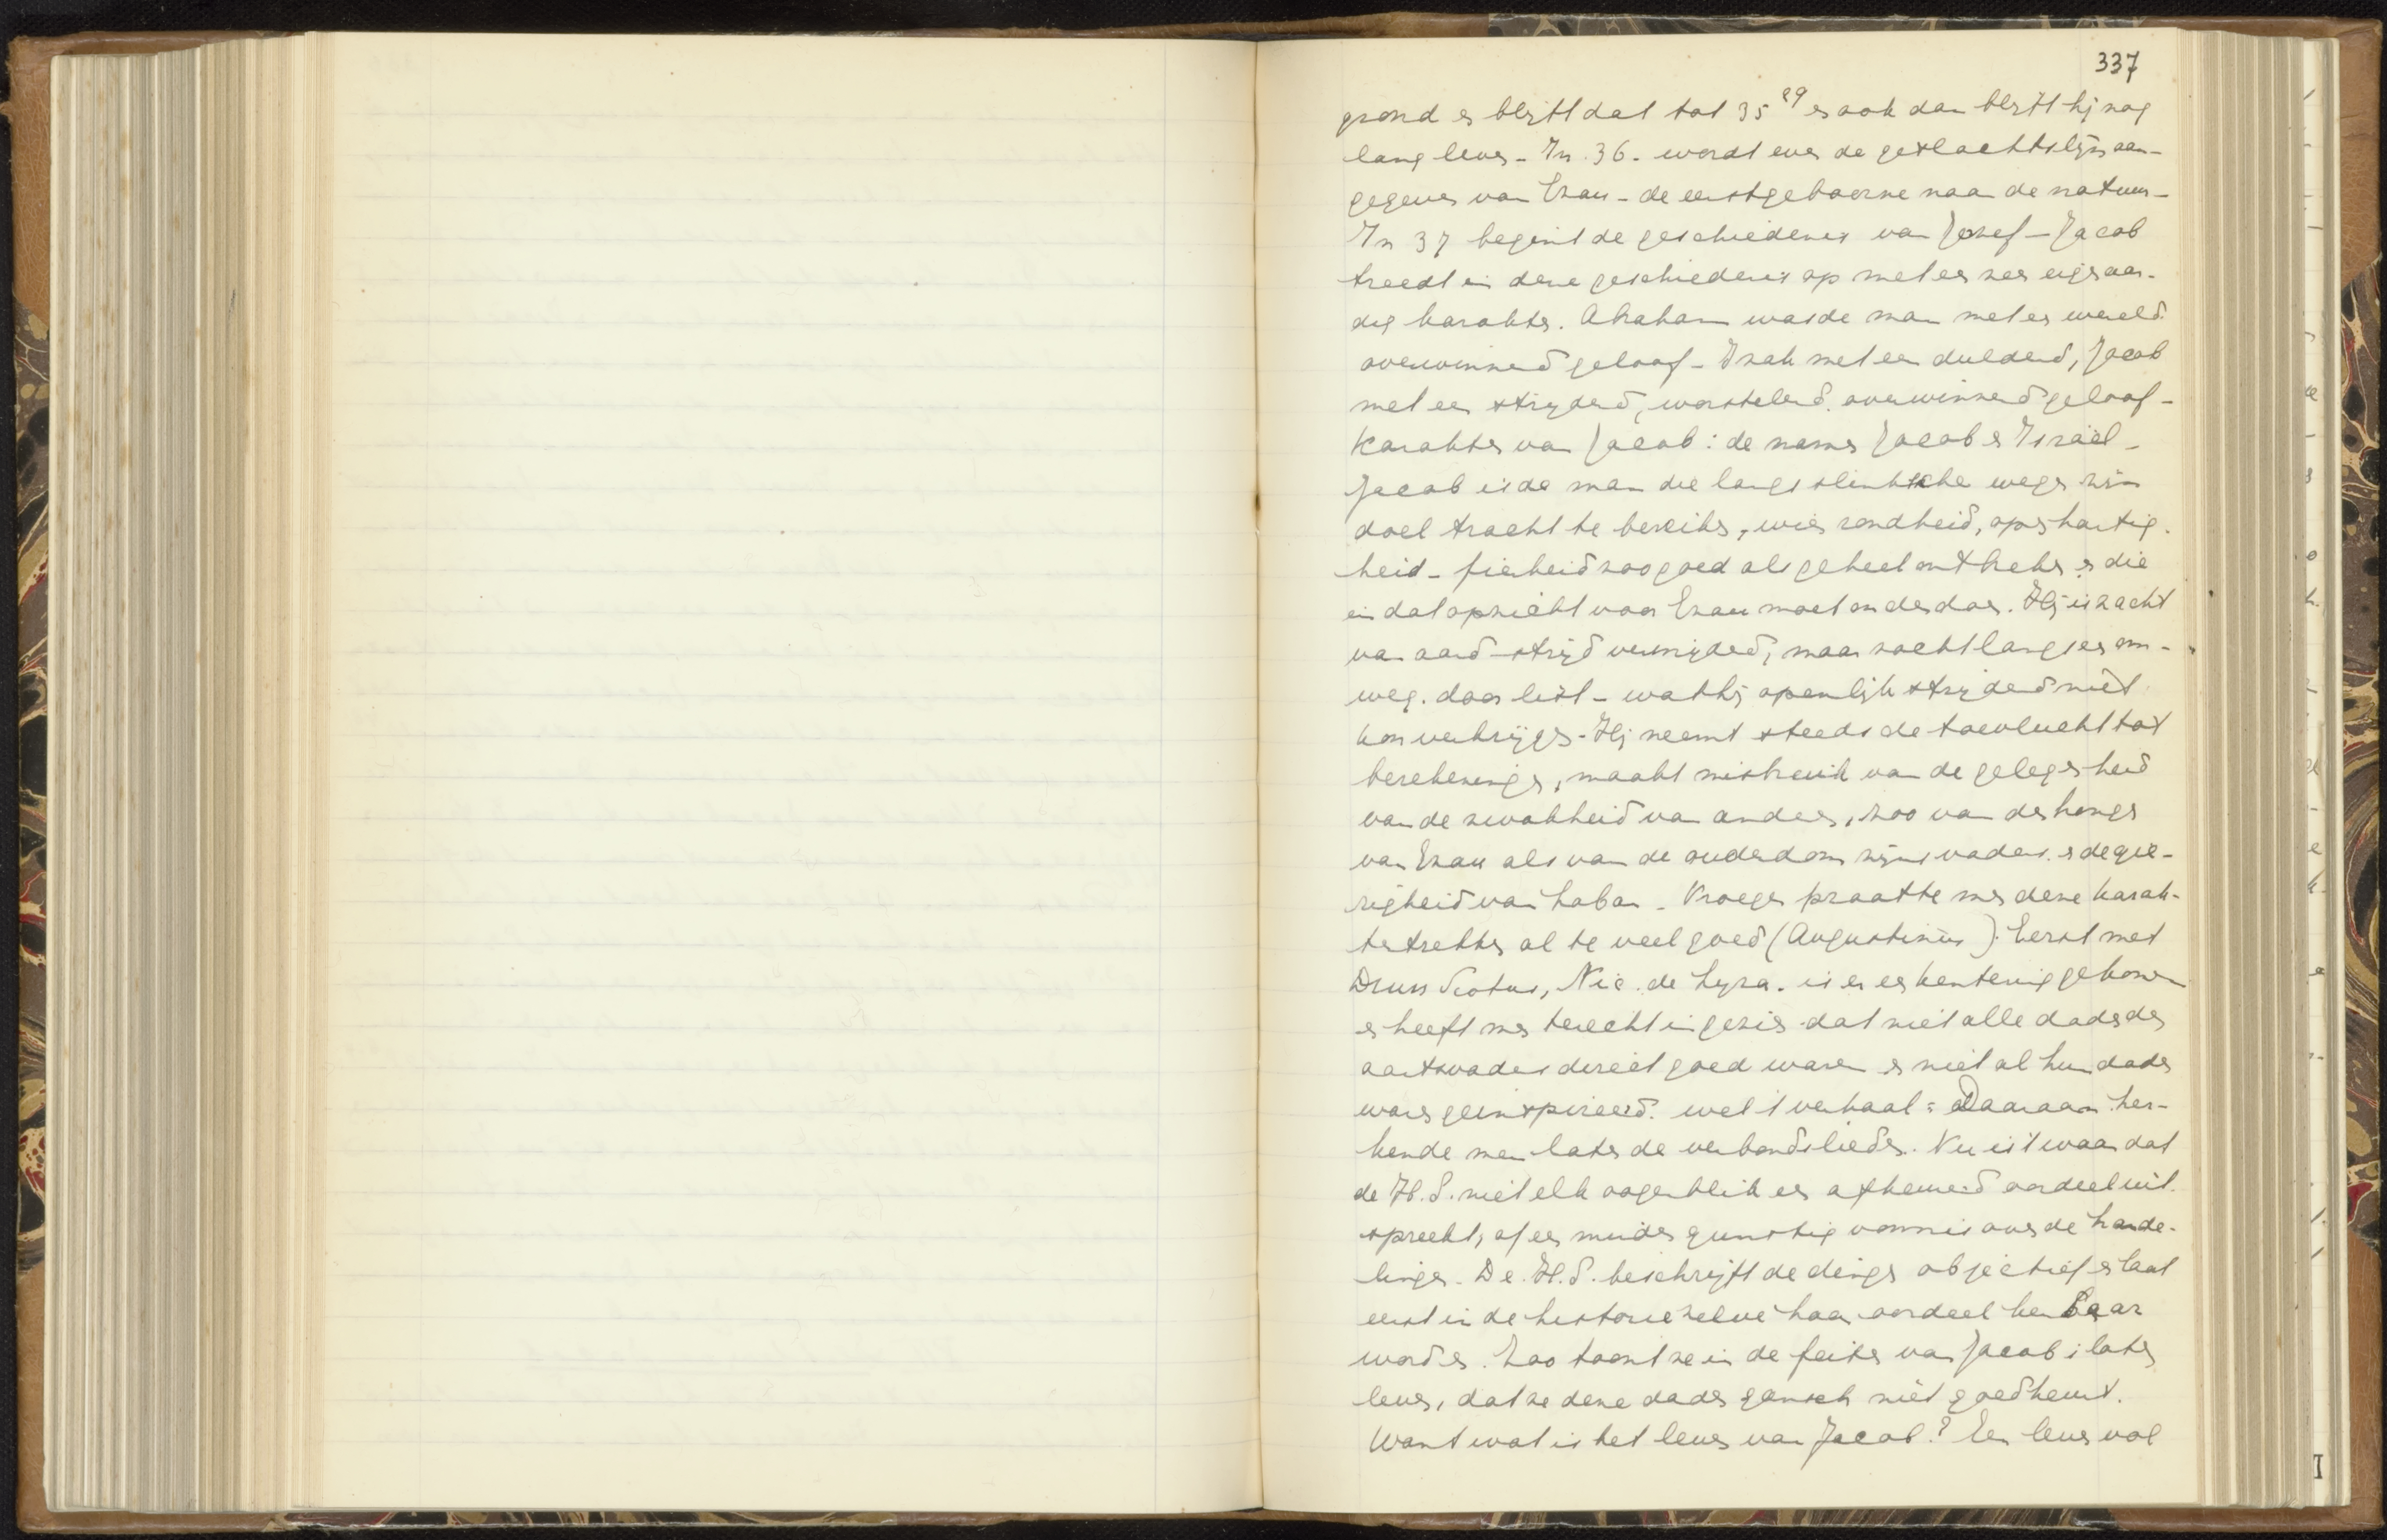 337
grond en blijft dat tot 35 29 en ook dan blijft hij nog
lang leven - In 36. wordt even de geslachtslijn aan-
gegeven van Ezau - de eerstgeboorne naar de natuur -
In 37 begint de geschiedenis van Jozef - Jacob
treedt in deze geschiedenis op met een zeer eigenaar-
dig karakter. Abraham was de man met een wereld
overwinnend geloof - Izak met een duldend, Jacob
met een strijdend, worstelend. overwinnend geloof -
Karakter van Jacob: de namen Jacob en Israël -
Jacob is de man die langs slinksche wegen zijn
doel tracht te bereiken, wien rondheid, openhartig-
heid - fierheid zoo goed als geheel ontbreken en die
in dat opzicht voor Ezau moet onderdoen. Hij is zacht
van aard - strijd vermijdend, maar zoekt langs een om-
weg. door list - wat hij openlijk strijdend niet
kon verkrijgen - Hij neemt steeds de toevlucht tot
berekeningen, maakt misbruik van de gelegenheid
van de zwakheid van anderen, zoo van den honger
van Ezau als van de ouderdom zijns vaders. en de gie-
righeid van Laban - Vroeger praatte men deze karak-
tertrekken al te veel goed (Augustinus). Eerst met
Duns Scotus, Nic. de Lyra. is er een kentering gekomen
en heeft men terecht ingezien dat niet alle daden der
aartsvaders direct goed waren en niet al hun daden
waren geïnspireerd. wel 't verhaal = Daaraan her-
kende men later de verbondslieden. Nu is 't waar dat
de H.S. niet elk oogenblik een afkeurend oordeel uit-
spreekt, of een minder gunstig vonnis over de hande-
lingen - De H.S. beschrijft de dingen objectief en laat
eerst in de historie zelve haar oordeel kenbaar
worden. Zoo toont ze in de feiten van Jacobs later
leven, dat ze deze daden gansch niet goedkeurt.
Want wat is het leven van Jacob? Een leven vol